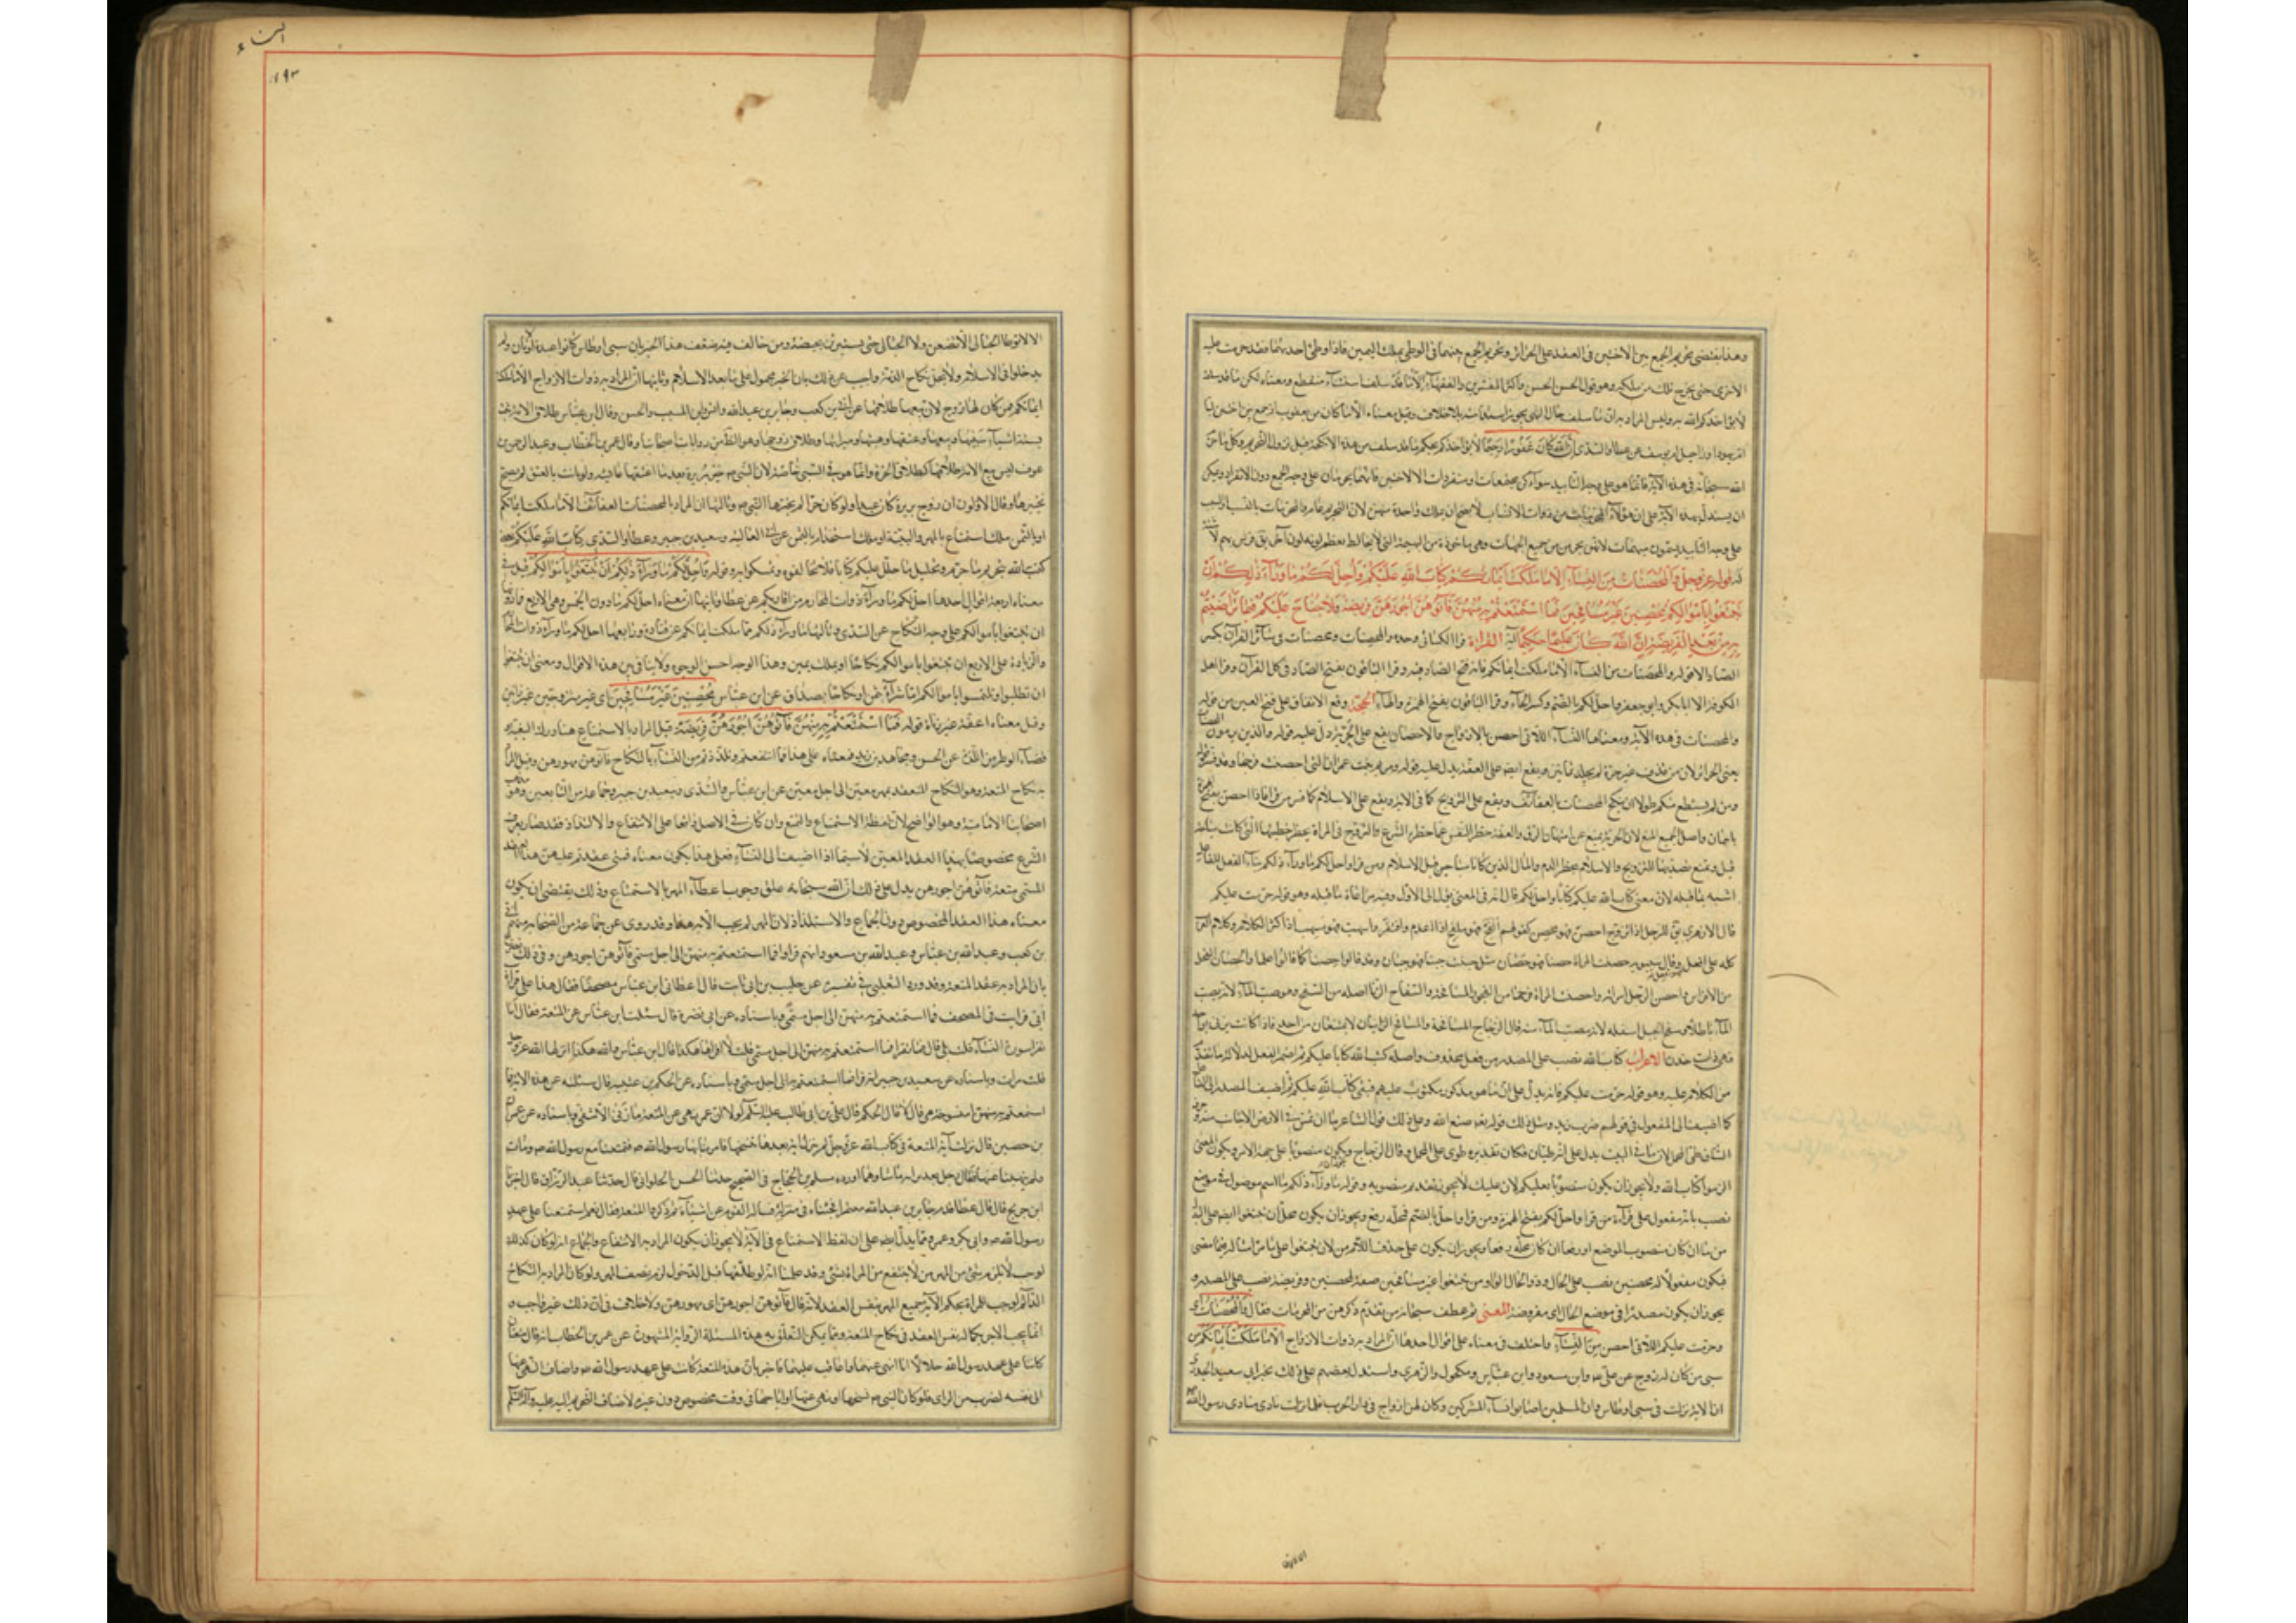 وهذا يقتضي تحريم الجمع بين الاختين في العقد على الحرائر وتحريم الجمع بينهما في الوطي بملك اليمين فاذا وطئ احديهما فقد حرمت عليه
الاخرى حتى يخرج تلك من ملكه وهو قول الحسن واكثر المفسرين والفقهاء الا ما قد سلف استثناء منقطع ومعناه لكن ما قد سلف
لا يؤاخذكم الله به وليس المراد به ان ما سلف حال النهي يجوز استدامته بلا خلاف وقيل معناه الا ما كان من يعقوب اذ جمع بين اختين ليا
ام يهودا وراحيل ام يوسف عن عطا والسدي ان الله كان غفورا رحيما لا يؤاخذكم بحكم ما قد سلف من هذه الانكحة قبل نزول التحريم وكل ما حرم
الله سبحانه في هذه الآية فانما هو على وجه التأبيد سواء كن مجتمعات او متفردات الا الاختين فانهما يحرمان على وجه الجمع دون الانفراد ويمكن
ان يستدل بهذه الآية على ان هؤلاء المحرمات من ذوات الانساب لا يصح ان يملك واحدة منهن لان التحريم عام والمحرمات بالنسب او السبب
على وجه التأبيد يسمون مبهمات لانهن يحرمن من جميع الجهات وهي ماخوذة من البهيم الذي لا يخالط معظم لونه لون آخر يق فرس بهيم لا شية
له قوله عز وجل والمحصنات من النساء الا ما ملكت ايمانكم كتاب الله عليكم واحل لكم ما وراء ذلكم ان
تبتغوا باموالكم محصنين غير مسافحين فما استمتعتم به منهن فآتوهن اجورهن فريضة ولا جناح عليكم فيما تراضيتم
به من بعد الفريضة ان الله كان عليما حكيما آية القراءة قرا الكسائي وحده والمحصنات ومحصنات في سائر القرآن بكسر
الصاد الا قوله والمحصنات من النساء الا ما ملكت ايمانكم فانه فتح الصاد فيه وقرا الباقون بفتح الصاد في كل القرآن وقرا اهل
الكوفة الا ابا بكر وابو جعفر واحل لكم بالضم وكسر الحاء وقرا الباقون بفتح الهمزة والحاء الحجة وقع الاتفاق على فتح العين من قوله
والمحصنات في هذه الآية ومعناها النساء اللاتي احصن بالازواج والاحصان يقع على الحرية يدل عليه قوله والذين يرمون المحصنات
يعني الحرائر لان من قذف غير حرة لم يجلد ثمانين ويقع ايضا على العفة يدل عليه قوله ومريم ابنت عمران التي احصنت فرجها
ومن لم يستطع منكم طولا ان ينكح المحصنات بالعفائف ويقع على التزويج كما في الآية ويقع على الاسلام كما فسر من قرا فاذا احصن بفتح الهمزة
باسلمن واصل الجميع المنع لان الحرية تمنع عن امتهان الرق والعفة حظر النفس عما حظره الشرع والتزويج في المراة يحظر خطبتها التي كانت مباحة
قبل ويمنع تصديها للتزويج والاسلام يحظر الدم والمال الذين كانا مباحين قبل الاسلام ومن قرا واحل لكم ما وراء ذلكم بناء الفعل للفاعل
اشبه بما قبله لان معنى كتاب الله عليكم كتابا واحل لكم قال انه في المعنى يؤل الى الاول وفيه مراعاة ما قبله وهو قوله حرمت عليكم
قال الازهري يق للرجل اذا تزوج احصن فهو محصن كقولهم الفج فهو ملفج اذا اعدم وافتقر واسهب فهو مسهب اذا اكثر الكلام وكلام العرب
كله على افعل وقال سيبويه حصنت المراة حصنا فهي حصان مثل جبنت جبنا فهو جبان وقد قالوا حصنا كما قالوا علما والحصان الفحل
من الافراس واحصن الرجل امراته واحصنت المراة فرجها من الفجور والمسافحة والسفاح الزنا اصله من السفح وهو صب الماء لانه يصب
الماء باطلا وسفح الجبل اسفله لانه مصب الماء منه قال الزجاج المسافحة والمسافح الزانيان لا يمتنعان من احد فاذا كانت تزني بواحد
فهي ذات خدن الاعراب كتاب الله نصب على المصدر من فعل محذوف واصله كتب الله كتابا عليكم ثم اضمر الفعل لدلالة ما تقدم
من الكلام عليه وهو قوله حرمت عليكم فانه يدل على ان ما هو مذكور مكتوب عليهم فبقي كتاب الله عليكم ثم اضيف المصدر الى الفاعل
كما اضيف الى المفعول في قولهم ضرب زيد ومثل ذلك قوله صنع الله وعلى ذلك قول الشاعر ما ان يمس الارض الا جانب منه وحرف
الساق طي المحمل لان ما في البيت يدل على انه طيان فكان تقديره طوى طي المحمل وقال الزجاج ويكون منصوبا على جهة الامر ويكون المعنى
الزموا كتاب الله ولا يجوز ان يكون منصوبا بعليكم لان عليك لا يجوز تقديم منصوبه وقوله ما وراء ذلكم ما اسم موصول في موضع
نصب بانه مفعول على قراءة من قرا واحل لكم بفتح الهمزة ومن قرا واحل بالضم فمحله رفع ويجوز ان يكون محل ان تبتغوا ايضا على البدل
من ما ان كان منصوب الموضع او رفعا ان كان محله رفعا ويجوز ان يكون على حذف اللام من لان تبتغوا على ما مر امثاله فيما مضى
فيكون مفعولا له محصنين نصب على الحال وذو الحال الواو من تبتغوا غير مسافحين صفة لمحصنين وفريضة نصب على المصدر و
يجوز ان يكون مصدرا في موضع الحال اي مفروضة المعنى ثم عطف سبحانه من تقدم ذكرهن من المحرمات فقال والمحصنات اي
وحرمت عليكم اللاتي احصن من النساء واختلف في معناه على اقوال احدها ان المراد به ذوات الازواج الا ما ملكت ايمانكم من
سبي من كان له زوج عن علي وابن مسعود وابن عباس ومكحول والزهري واستدل بعضهم على ذلك بخبر ابي سعيد الخدري
ان الآية نزلت في سبي اوطاس وان المسلمين اصابوا نساء المشركين وكان لهن ازواج في دار الحرب فلما نزلت نادى منادي رسول الله
النساء
١٩٣
الا لا توطا الحبالى حتى يضعن ولا الحيالى حتى يستبرئن بحيضة ومن خالف فيه ضعف هذا الخبر بان سبي اوطاس كانوا عبدة الاوثان ولم
يدخلوا في الاسلام ولا يحل نكاح الوثنية واجيب عن ذلك بان الخبر محمول على ما بعد الاسلام وثانيها ان المراد به ذوات الازواج الا ما ملكت
ايمانكم ممن كان لها زوج لان بيعها طلاقها عن ابي بن كعب وجابر بن عبد الله وانس وابن المسيب والحسن وقال ابن عباس طلاق الامة يثبت
بستة اشياء سبيها وبيعها وعتقها وهبتها وميراثها وطلاق زوجها وهو الظاهر من روايات اصحابنا وقال عمر بن الخطاب وعبد الرحمن بن
عوف ليس بيع الامة طلاقها كطلاق الحرة وانما هو في السبي خاصة لان النبي ص خير بريرة بعد ما اعتقها عايشة ولو بانت بالعتق لم يصح
تخييرها وقال الاولون ان زوج بريرة كان عبدا ولو كان حرا لم يخيرها النبي ص وثالثها ان المراد بالمحصنات العفائف الا ما ملكت ايمانكم
او بالثمن ملك استمتاع بالمهر والبينة او ملك استخدام بالثمن عن ابي العالية وسعيد بن جبير وعطا والسدي كتاب الله عليكم يعني
كتب الله تحريم ما حرم وتحليل ما حلل عليكم كتابا فلا تخالفوه وتمسكوا به وقوله واحل لكم ما وراء ذلكم ان تبتغوا باموالكم قيل في
معناه اربعة اقوال احدها احل لكم ما وراء ذوات المحارم من اقاربكم عن عطا وثانيها ان معناه احل لكم ما دون الخمس وهي الاربع فما دونها
ان تبتغوا باموالكم على وجه النكاح عن السدي وثالثها ما وراء ذلكم مما ملكت ايمانكم عن قتادة ورابعها احل لكم ما وراء ذوات المحارم
والزيادة على الاربع ان تبتغوا باموالكم نكاحا او بملك يمين وهذا الوجه احسن الوجوه ولا تنافي بين هذه الاقوال ومعنى ان تبتغوا
ان تطلبوا وتلتمسوا باموالكم اما شراء بثمن او نكاحا بصداق عن ابن عباس محصنين غير مسافحين اي غير متزوجين غير زانين
وقيل معناه اعفة غير زناة قوله فما استمتعتم به منهن فآتوهن اجورهن فريضة قيل المراد بالاستمتاع هنا درك البغية و
قضاء الوطر من اللذة عن الحسن ومجاهد وابن زيد فمعناه على هذا فما انتفعتم وتلذذتم من النساء بالنكاح فآتوهن مهورهن وقيل المراد
به نكاح المتعة وهو النكاح المنعقد بمهر معين الى اجل معين عن ابن عباس والسدي وسعيد بن جبير وجماعة من التابعين وهو مذهب
اصحابنا الامامية وهو الواضح لان لفظة الاستمتاع والتمتع وان كان في الاصل واقعا على الانتفاع والالتذاذ فقد صار بعرف
الشرع مخصوصا بهذا العقد المعين لا سيما اذا اضيف الى النساء فعلى هذا يكون معناه فمتى عقدتم عليهن هذا العقد
المسمى متعة فآتوهن اجورهن يدل على ذلك ان الله سبحانه علق وجوب اعطاء المهر بالاستمتاع وذلك يقتضي ان يكون
معناه هذا العقد المخصوص دون الجماع والاستلذاذ لان المهر لا يجب الا به هذا وقد روي عن جماعة من الصحابة منهم ابي
بن كعب وعبد الله بن عباس وعبد الله بن مسعود انهم قراوا فما استمتعتم به منهن الى اجل مسمى فآتوهن اجورهن وفي ذلك تصريح
بان المراد به عقد المتعة وقد اورد الثعلبي في تفسيره عن حبيب بن ابي ثابت قال اعطاني ابن عباس مصحفا فقال هذا على قراءة
ابي فرايت في المصحف فما استمتعتم به منهن الى اجل مسمى وباسناده عن ابي نضرة قال سئلت ابن عباس عن المتعة فقال اما
تقرا سورة النساء قلت بلى قال فما تقرا فما استمتعتم به منهن الى اجل مسمى قلت لا اقراها هكذا قال ابن عباس والله هكذا انزلها الله عز وجل
ثلث مرات وباسناده عن سعيد بن جبير انه قرا فما استمتعتم به منهن الى اجل مسمى وباسناده عن الحكم بن عتيبة قال سئلته عن هذه الآية فما
استمتعتم به منهن امنسوخة هي قال لا قال الحكم قال علي بن ابي طالب عليه السلم لولا ان عمر نهى عن المتعة ما زنى الا شقي وباسناده عن عمران
بن حصين قال نزلت آية المتعة في كتاب الله عز وجل ولم تنزل آية بعدها تنسخها فامرنا بها رسول الله ص فتمتعنا مع رسول الله ص ومات
ولم ينهنا عنها فقال رجل بعد برايه ما شاء ومما اورده مسلم بن الحجاج في الصحيح حدثنا الحسن الحلواني قال حدثنا عبد الرزاق قال اخبرنا
ابن جريج قال قال عطا قدم جابر بن عبد الله معتمرا فجئناه في منزله فساله القوم عن اشياء ثم ذكروا المتعة فقال نعم استمتعنا على عهد
رسول الله ص وابي بكر وعمر ومما يدل ايضا على ان لفظ الاستمتاع في الآية لا يجوز ان يكون المراد به الانتفاع والجماع انه لو كان كذلك
لوجب الا يلزم شيء من المهر من لا ينتفع من المراة بشيء وقد علمنا انه لو طلقها قبل الدخول لزمه نصف المهر ولو كان المراد به النكاح
الدائم لوجب للمراة بحكم الآية جميع المهر بنفس العقد لانه قال فآتوهن اجورهن اي مهورهن ولا خلاف في ان ذلك غير واجب و
انما يجب الاجر بكماله بنفس العقد في نكاح المتعة ومما يمكن التعلق به في هذه المسئلة الرواية المشهورة عن عمر بن الخطاب انه قال متعتان
كانتا على عهد رسول الله حلالا انا انهى عنهما واعاقب عليهما فاخبر بان هذه المتعة كانت على عهد رسول الله ص واضاف النهي عنها
الى نفسه لضرب من الراي فلو كان النبي ص نسخها او نهى عنها او اباحها في وقت مخصوص دون غيره لاضاف التحريم اليه عليه وآله السلم